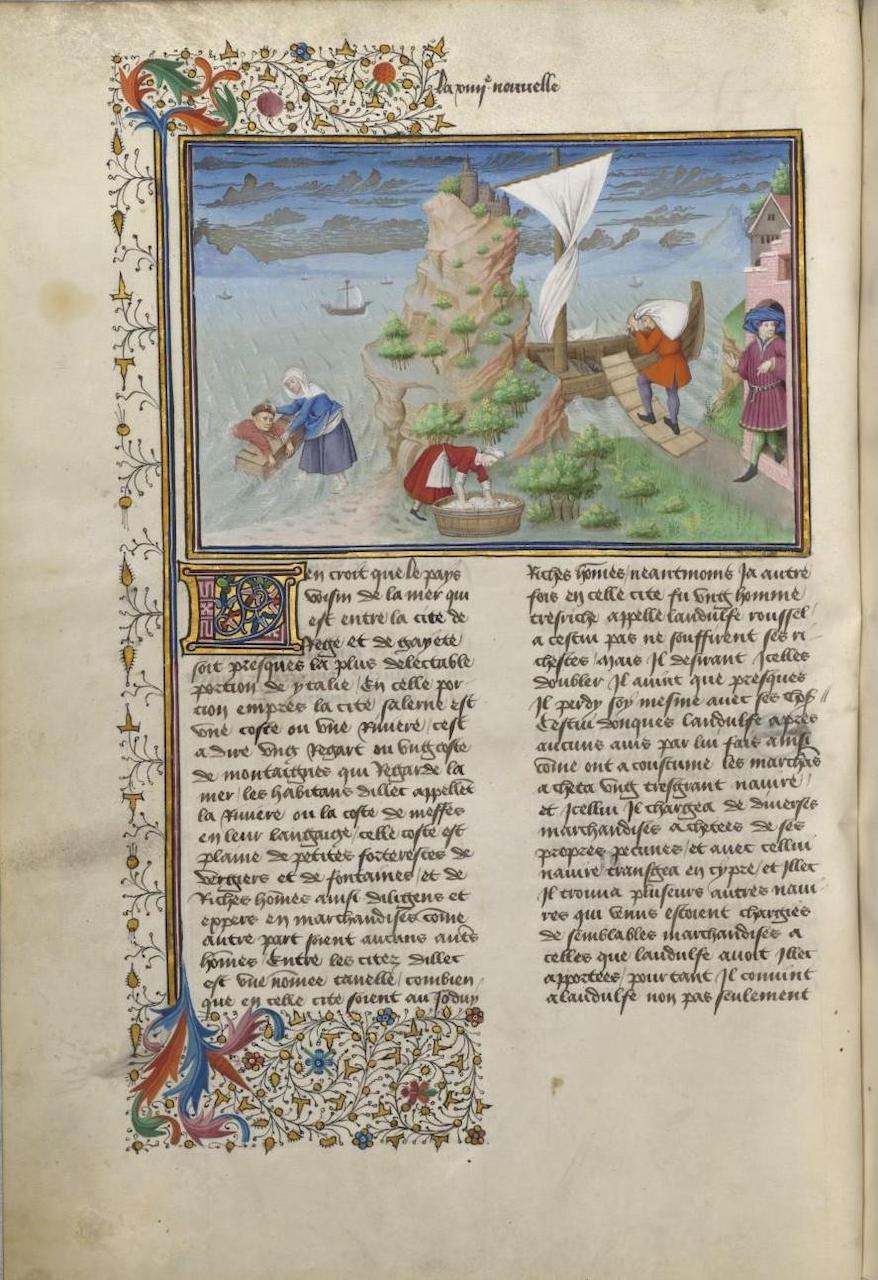 la xiiii.e nouuelle
en croit que le pays
voisin de la mer qui
est entre la cite de
rege et de gayete
soit presques la plus delectable
portion de ytalie / En celle por
tion empres la cite salerne est
vne coste ou vne Riuiere / cest
a dire vng regart ou vng coste
de montaignes qui Regarde la
mer / les habitans dillec appellẽt
la Riuiere ou la coste de meffes
en leur languige / celle coste est
plaine de petites forteresces de
vergiers et de fontaines / et de
Riches hõmes ainsi diligens et
expers en marchandises cõme
autre part soient aucuns autẽs
hõmes / Entre les citez dillec
est vne nõmee rauelle / combien
que en celle cite soient au Jourduy
Riches hõmes / neantmoins Ja autre
fois en celle cite fu vng homme
tresriche appelle landulfe roussel /
a cestui pas ne souffirent ses ri
chesces / Mais Il desirant Icelles
doubler Il auint que presques
Il perdy soy mesme auec ses
Cestui donques landulfe apres
aucuns auis par lui fais ainsi
cõme ont a coustume les marchãs
acheta vng tresgrant nauire /
et Icellui Il chargea de diuerses
marchandises achetees de ses
propres pecunes / et auec cellui
nauire transgea en cypre / et Illec
Il trouua pluseurs autres naui
res qui venus estoient chargies
de semblables marchandises a
celles que landulfe auoit Illec
apportees / pour tant Il conuint
a landulfe non pas seulement